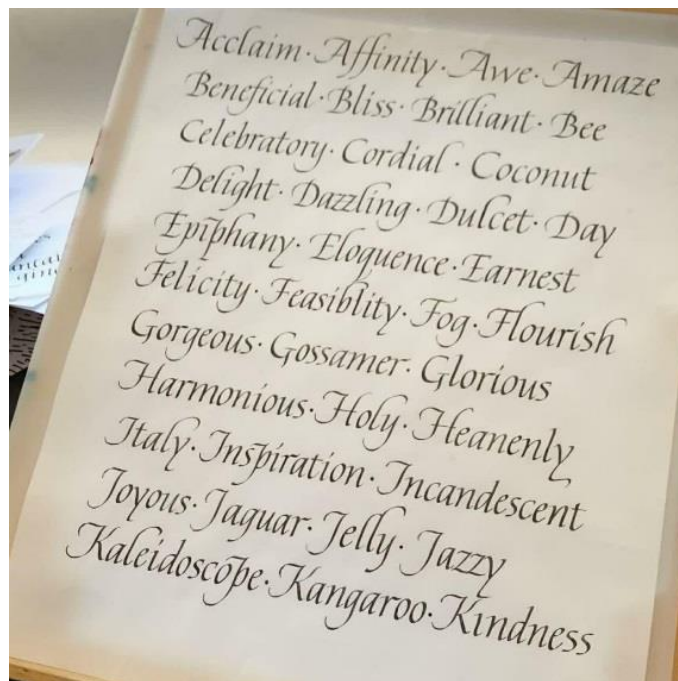 Acclaim · Affinity · Awe · Amaze
Beneficial · Bliss · Brilliant · Bee
Celebratory · Cordial · Coconut
Delight · Dazzling · Dulcet · Day
Epiphany · Eloquence · Earnest
Felicity · Feasiblity · Fog · Flourish
Gorgeous · Gossamer · Glorious
Harmonious · Holy · Heanenly
Italy · Inspiration · Incandescent
Joyous · Jaguar · Jelly · Jazzy
Kaleidoscope · Kangaroo · Kindness